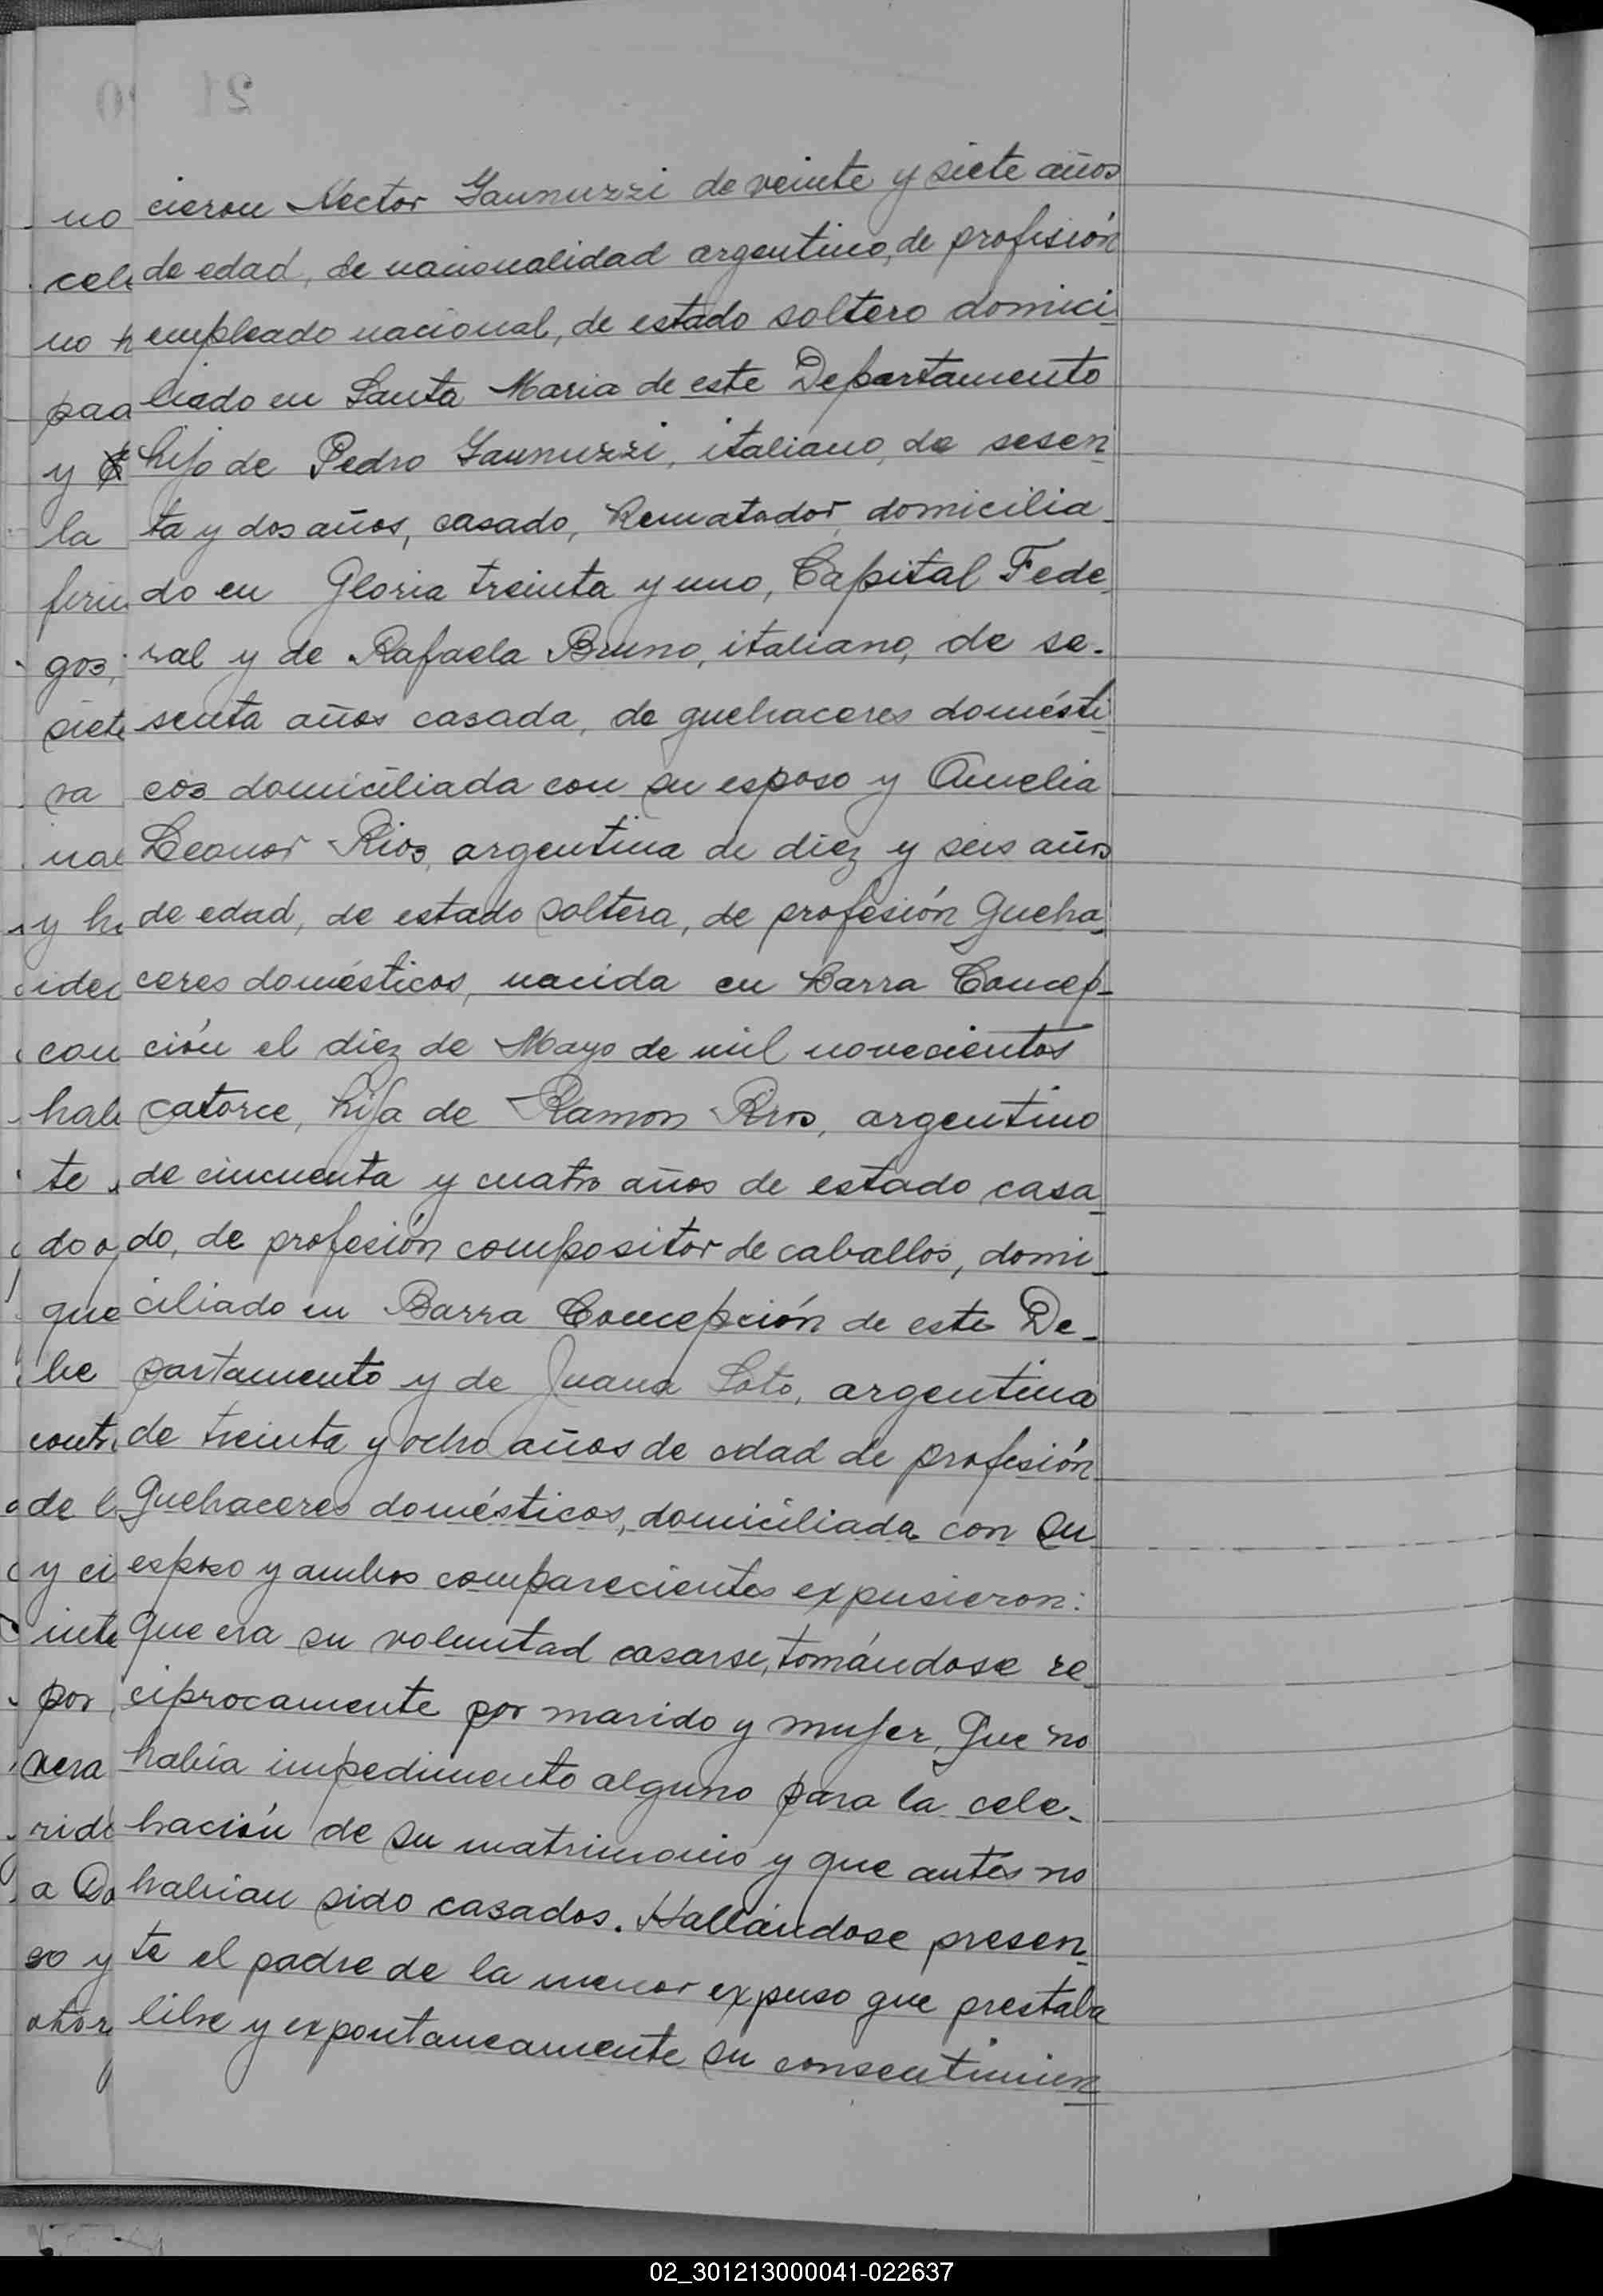 21
cieron Nector Iannuzzi de veinte y siete años
de edad, de nacionalidad argentino, de profisión
empleado nacional, de estado soltero domici
liado en Santa Maria de este Departamento
hijo de Pedro Iannuzzi, italiano, de sesen
ta y dos años, casado, Rematador, domicilia
do en Gloria treinta y uno, Capital Fede
ral y de Rafaela Bruno, italiano, de se-
senta años casada, de quehaceres domésti
cos domiciliada con su esposo y Amelia
Leonor Rios, argentina de diez y seis años
de edad, de estado soltera, de profesión Queha
ceres domésticos, nacida en Barra Concep-
ción el diez de Mayo de mil novecientos
catorce, hija de Ramon Rios, argentino
de cincuenta y cuatro años de estado casa
do, de profesión compositor de caballos, domi-
ciliado en Barra Concepción de este De-
partamento y de Juana Soto, argentina
de treinta y ocho años de edad de profesión
Quehaceres domésticos, domiciliada con su
esposo y ambos comparecientes expusieron:
Que era su voluntad casarse, tomándose re
ciprocamente por marido y mujer, Que no
habia impedimento alguno para la cele-
bración de su matrimonio y que antes no
habian sido casados. Hallándose presen
te el padre de la menor expuso que prestaba
libre y expontaneamente su consentimien
02_301213000041-022637